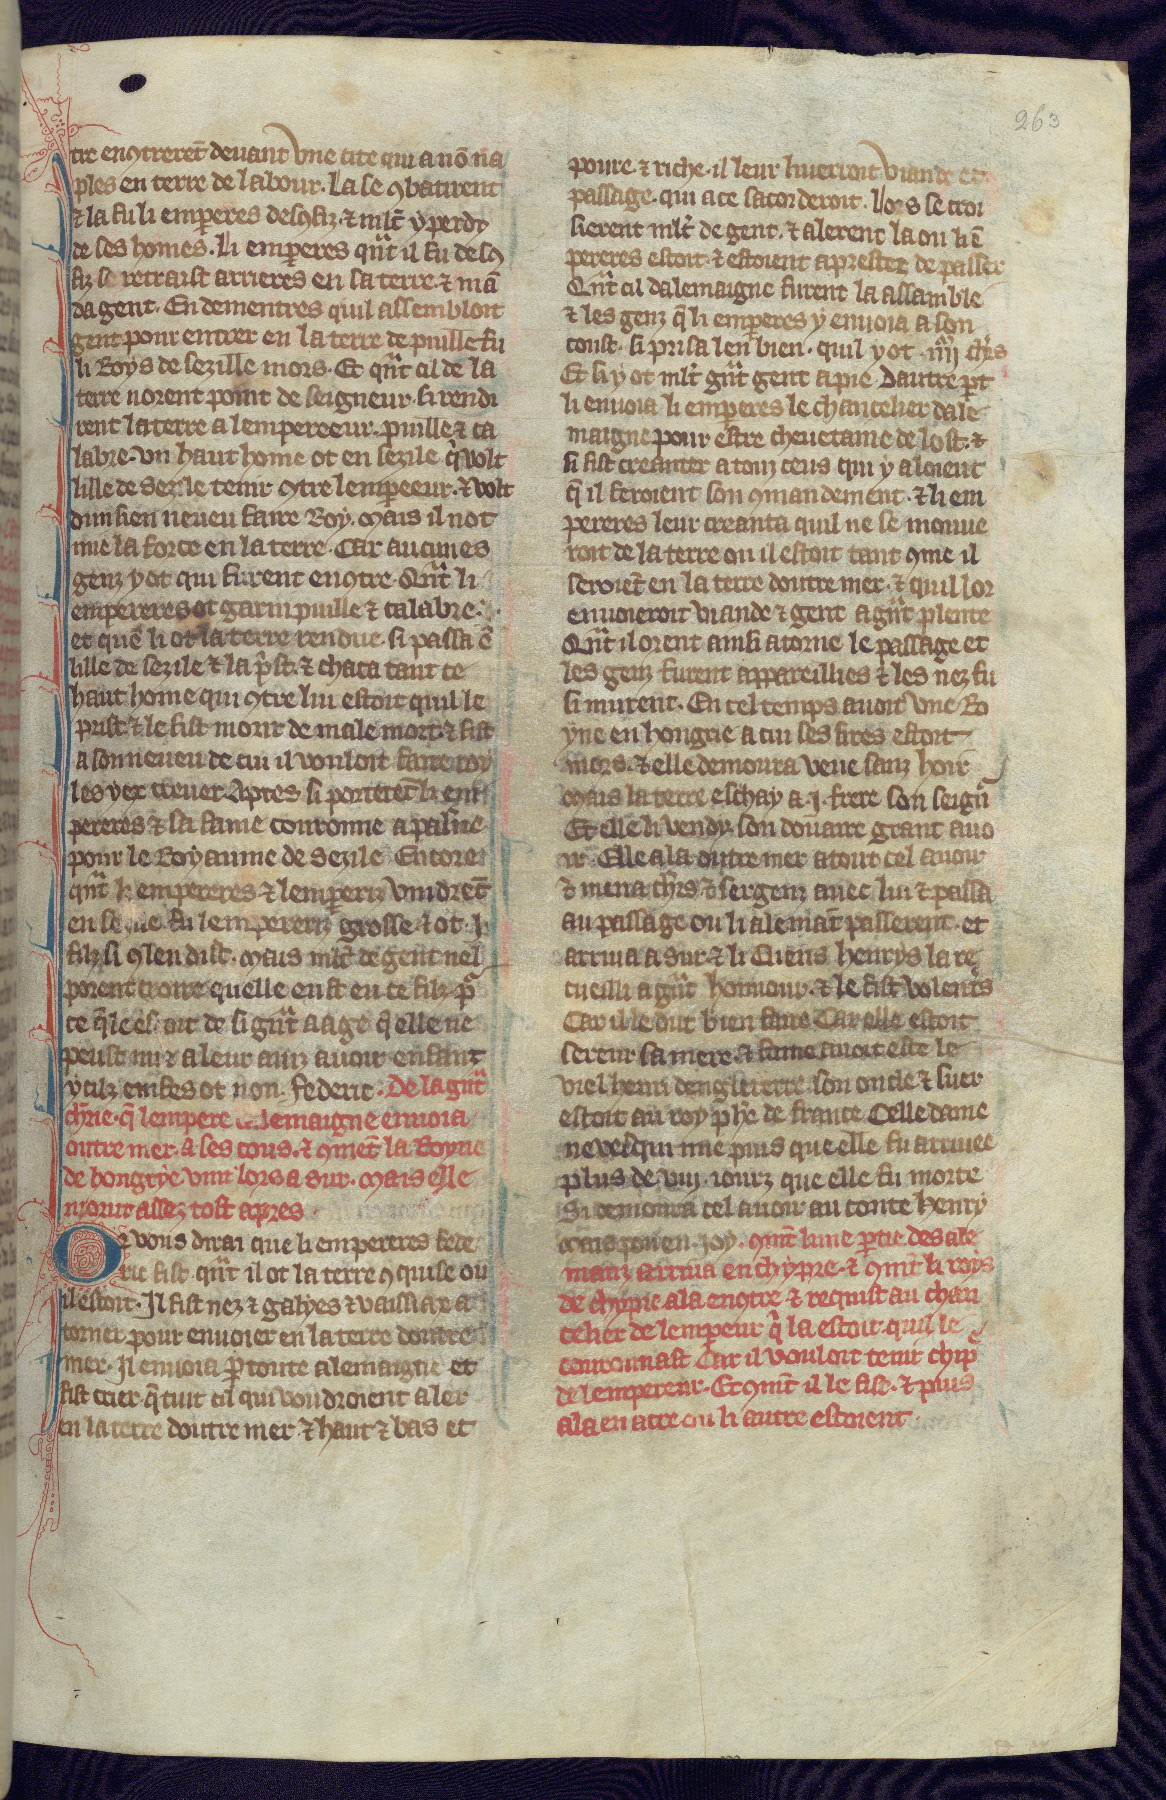 263
tre enꝯtreret̄ deuant vne cite qui a nō na
ples en terre de labour. La se ꝯbatirent
⁊ la fu li emꝑeres desꝯfiz. ⁊ ml̄t y perdy
de ses homes. Li emꝑeres qn̄t il fu desꝯ
fiz se retraist arrieres en sa terre. ⁊ mā
da gent. En dementres quil assembloit
gent pour entrer en la terre de puille fu
li Roys de sezille mors. Et qn̄t cil de la
terre norent point de seigneur. si rendi
rent la terre a lempereeur. puille ⁊ ca
labre. Vn haut home ot en sezile q̄ volt
lille de Sezile tenir ꝯtre lemꝑeeur. ⁊ volt
dun sien neueu faire Roy. Mais il not
mie la force en la terre. Car aucunes
genz y ot qui furent enꝯtre. Qn̄t li
empereres ot garni puille ⁊ calabre.
et quē li ot la terre rendue. si passa ē
lille de sezile ⁊ la p̄st. ⁊ chaca tant ce
haut home qui ꝯtre lui estoit quil le
prist. ⁊ le fist morir de male mort. ⁊ fist
a son neueu de cui il vouloit faire roy
les yex creuer Apres si porteret̄ li em
pereres ⁊ sa fame couronne a palne
pour le Royaume de Sezile. Encore
qn̄t li empereres ⁊ lemꝑeriz vindrēt
en sezile. fu lempereriz grosse. ⁊ ot .j.
filz si ꝯ len dist. Mais ml̄t de gent nel
porent croire quelle eust eu ce filz p̄
ce q̄le estoit de si gn̄t aage q̄ elle ne
peust mie a leur auiz auoir enfant
ycilz emfes ot non. Federic. De la gn̄t
ch̄rie. q̄ lempere dalemaigne enuoia
outre mer. a ses cous. ⁊ ꝯmet̄ la Royne
de hongrye vint lors a sur. Mais elle
morut assez tost apres
Or vous dirai que li empereres fede
ric fist. qn̄t il ot la terre ꝯquise ou
il estoit. Il fist nez ⁊ galyes ⁊ vaissiax a
torner pour enuoier en la terre doutre
mer. Il enuoia ꝑ toute alemaigne et
fist crier q̄ tuit cil qui voudroient aler
en la terre doutre mer. ⁊ haut ⁊ bas et
poure ⁊ riche. il leur liuerroit viande et
passage. qui a ce sacorderoit. Lors se croi
sierent ml̄t de gent. ⁊ alerent la ou li ē
pereres estoit. ⁊ estoient aprestez de passer
Qn̄t cil dalemaigne furent la assamble
⁊ les genz q̄ li emꝑeres y enuoia a son
coust. si prisa len bien. quil y ot .iiij. ch̄rs
Et si y ot ml̄t gn̄t gent a pie. Dautre ꝑt
li enuoia li emꝑeres le chancelier dale
maigne pour estre cheuetaine de lost. ⁊
si fist creanter a touz ceus qui y aloient
q̄ il feroient son ꝯmandement. ⁊ li em
pereres leur creanta quil ne se mouue
roit de la terre ou il estoit tant ꝯme il
seroiet̄ en la terre doutre mer. ⁊ quil lor
enuoieroit viande ⁊ gent a gn̄t plente
Qn̄t il orent ainsi atorne le passage et
les genz furent appareillies ⁊ les nez fu
si murent. En tel temps auoit vne Ro
yne en hongrie a cui ses sires estoit
mors. ⁊ elle demoura veue sanz hoir
Mais la terre eschay a .j. frere son seign̄
Et elle li vendy son douaire grant auo
ir. Elle ala outre mer atout cel auoir
⁊ mena ch̄rs ⁊ sergenz auec lui ⁊ passa
au passage ou li alemat̄ passerent. et
arriua a sur. ⁊ li Cuens henrys la re
cueilli a gn̄t honnour. ⁊ le fist volent̄s
Car il le dut bien faire Car elle estoit
sereur sa mere ⁊ fame auoit este le
viel henri dengleterre. son oncle ⁊ suer
estoit au roy ph̄e de france Celle dame
ne vesqui mie puis que elle fu arriuee
plus de viij. iourz que elle fu morte
Si demoura cel auoir au conte Henry
Mais pou en joy. ꝯmt̄ lune ꝑtie des ale
manz arriua en chypre. ⁊ ꝯmt̄ li roys
de chypre ala enꝯtre ⁊ requist au chan
celier de lempeur q̄ la estoit. quil le
couronnast Car il vouloit tenir chip̄
de lempereur. Et ꝯmt̄ il le fist. ⁊ puis
ala en acre ou li autre estoient.